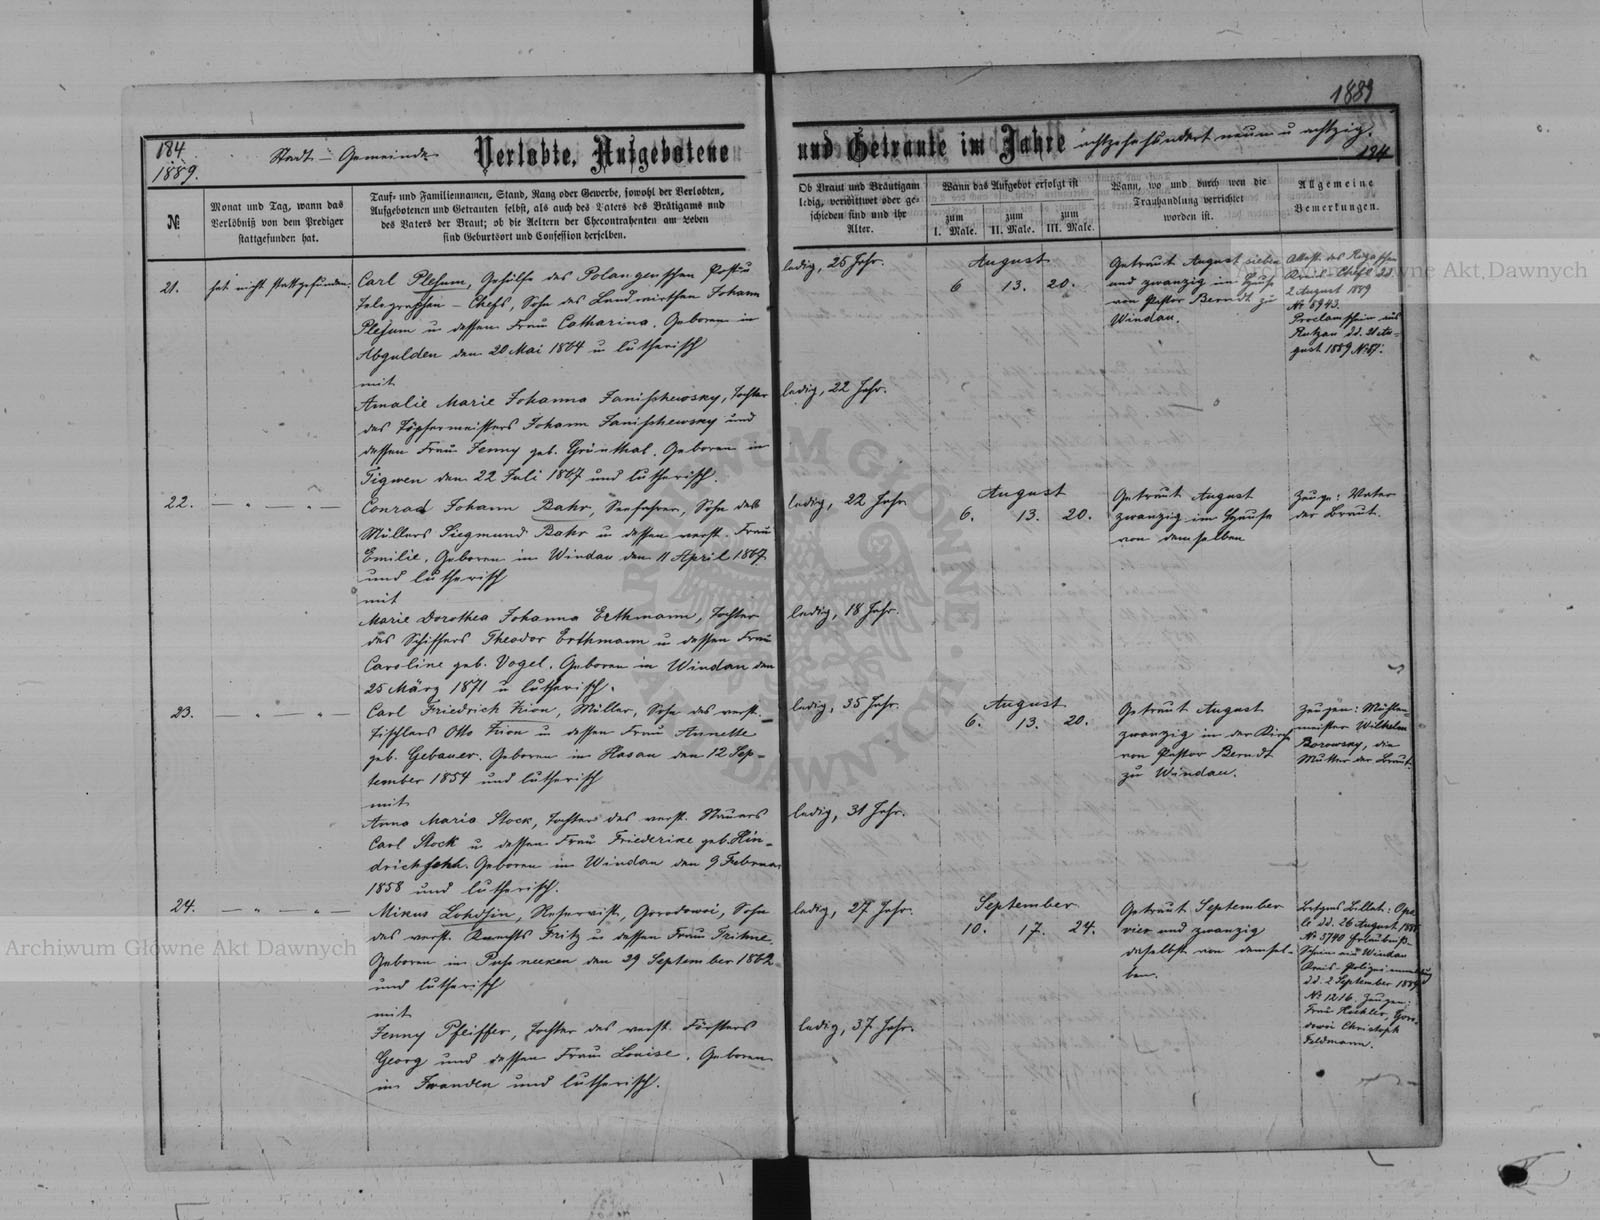 1889
184
1889.
Stadt-Gemeinde
Verlobte, Aufgebotene
und Getraute im Jahre achtzehnhundert neun u achtzig.
184
№
Monat und Tag, wann das
Verlöbniß von dem Prediger
stattgefunden hat.
Tauf- und Familiennamen, Stand, Rang oder Gewerbe, sowohl der Verlobten,
Aufgebotenen und Getrauten selbst, als auch des Vaters des Brätigams und
des Vaters der Braut; ob die Aeltern der Ehecontrahenten am Leben
sind Geburtsort und Confession derselben.
Ob Braut und Bräutigam
ledig, verwittwet oder ge-
schieden sind und ihr
Alter.
Wann das Aufgebot erfolgt ist
zum
I. Male.
zum
II. Male.
zum
III. Male.
Wann, wo und durch wen die
Trauhandlung verrichtet
worden ist.
Allgemeine
Bemerkungen.
21.
hat nicht stattgefunden.
Carl Plesum, Gehülfe des Polangenschen Post u
Telegraphen-Chefs, Sohn des Landwirthen Johann
Plesum u dessen Frau Catharina. Geboren in
Abgulden den 20 Mai 1864 u lutherisch
mit
Amalie Marie Johanna Janischewsky, Tochter
des Töpfermeisters Johann Janischewsky und
dessen Frau Jenny geb. Grünthal. Geboren in
Tigwen den 22 Juli 1867 und lutherisch.
ledig, 25 Jahr.
ledig, 22 Jahr.
August
6 13. 20.
Getraut August sieben
und zwanzig im Hause
von Pastor Berndt zu
Windau.
Attest des Rigaschen
dd.
2 August 1889
№ 8943.
Proclamschein aus
Rutzau dd. 21 Au-
gust 1889 № 87.
22.
— " — " —
Conrad Johann Bahr, Seefahrer, Sohn des
Müllers Siegmund Bahr u dessen verst. Frau
Emilie. Geboren in Windau den 11 April 1867
und lutherisch
mit
Marie Dorothea Johanna Erthmann, Tochter
des Schiffers Theodor Erthmann u dessen Frau
Caroline geb. Vogel. Geboren in Windau den
25 März 1871 u lutherisch.
ledig, 22 Jahr
ledig, 18 Jahr.
August
6. 13. 20.
Getraut August
zwanzig im Hause
von demselben
Zeuge: Vater
der Braut.
23.
— " — " —
Carl Friedrich Kion, Müller, Sohn des verst.
Tischlers Otto Kion u dessen Frau Annette
geb. Gebauer. Geboren in Hasau den 12 Sep-
tember 1854 und lutherisch
mit
Anna Maria Stock, Tochter des verst. Stauers
Carl Stock u dessen Frau Friederike geb. Hin-
drichsohn. Geboren in Windau den 9 Februar
1858 und lutherisch.
ledig, 35 Jahr.
ledig, 31 Jahr.
August
6. 13. 20.
Getraut August
zwanzig in der Kirche
von Pastor Berndt
zu Windau.
Zeugen: Mühlen-
meister Wilhelm
Borowsky, die
Mutter der Braut.
24.
— " — " —
Mikus Lohdsin, Reservist, Gorodowoi, Sohn
des verst. Knechts Fritz u dessen Frau Trihne.
Geboren in Pussneeken den 29 September 1862
und lutherisch
mit
Jenny Pfeiffer, Tochter des verst. Försters
Georg und dessen Frau Louise. Geboren
in Iwanden und lutherisch.
ledig, 27 Jahr.
ledig, 37 Jahr.
September
10. 17. 24.
Getraut September
vier und zwanzig
daselbst von demsel-
ben.
dd. 26 August 1888
№ 3740 Erlaubniß-
Schein aus Windau
Kreis-Polizei
dd. 2 September 1889
№ 1216. Zeugen:
Frau Heckler, Goro-
dowoi Christoph
Feldmann.
Archiwum Główne Akt Dawnych
Archiwum Główne Akt Dawnych
ARCHIWUM GŁÓWNE AKT DAWNYCH